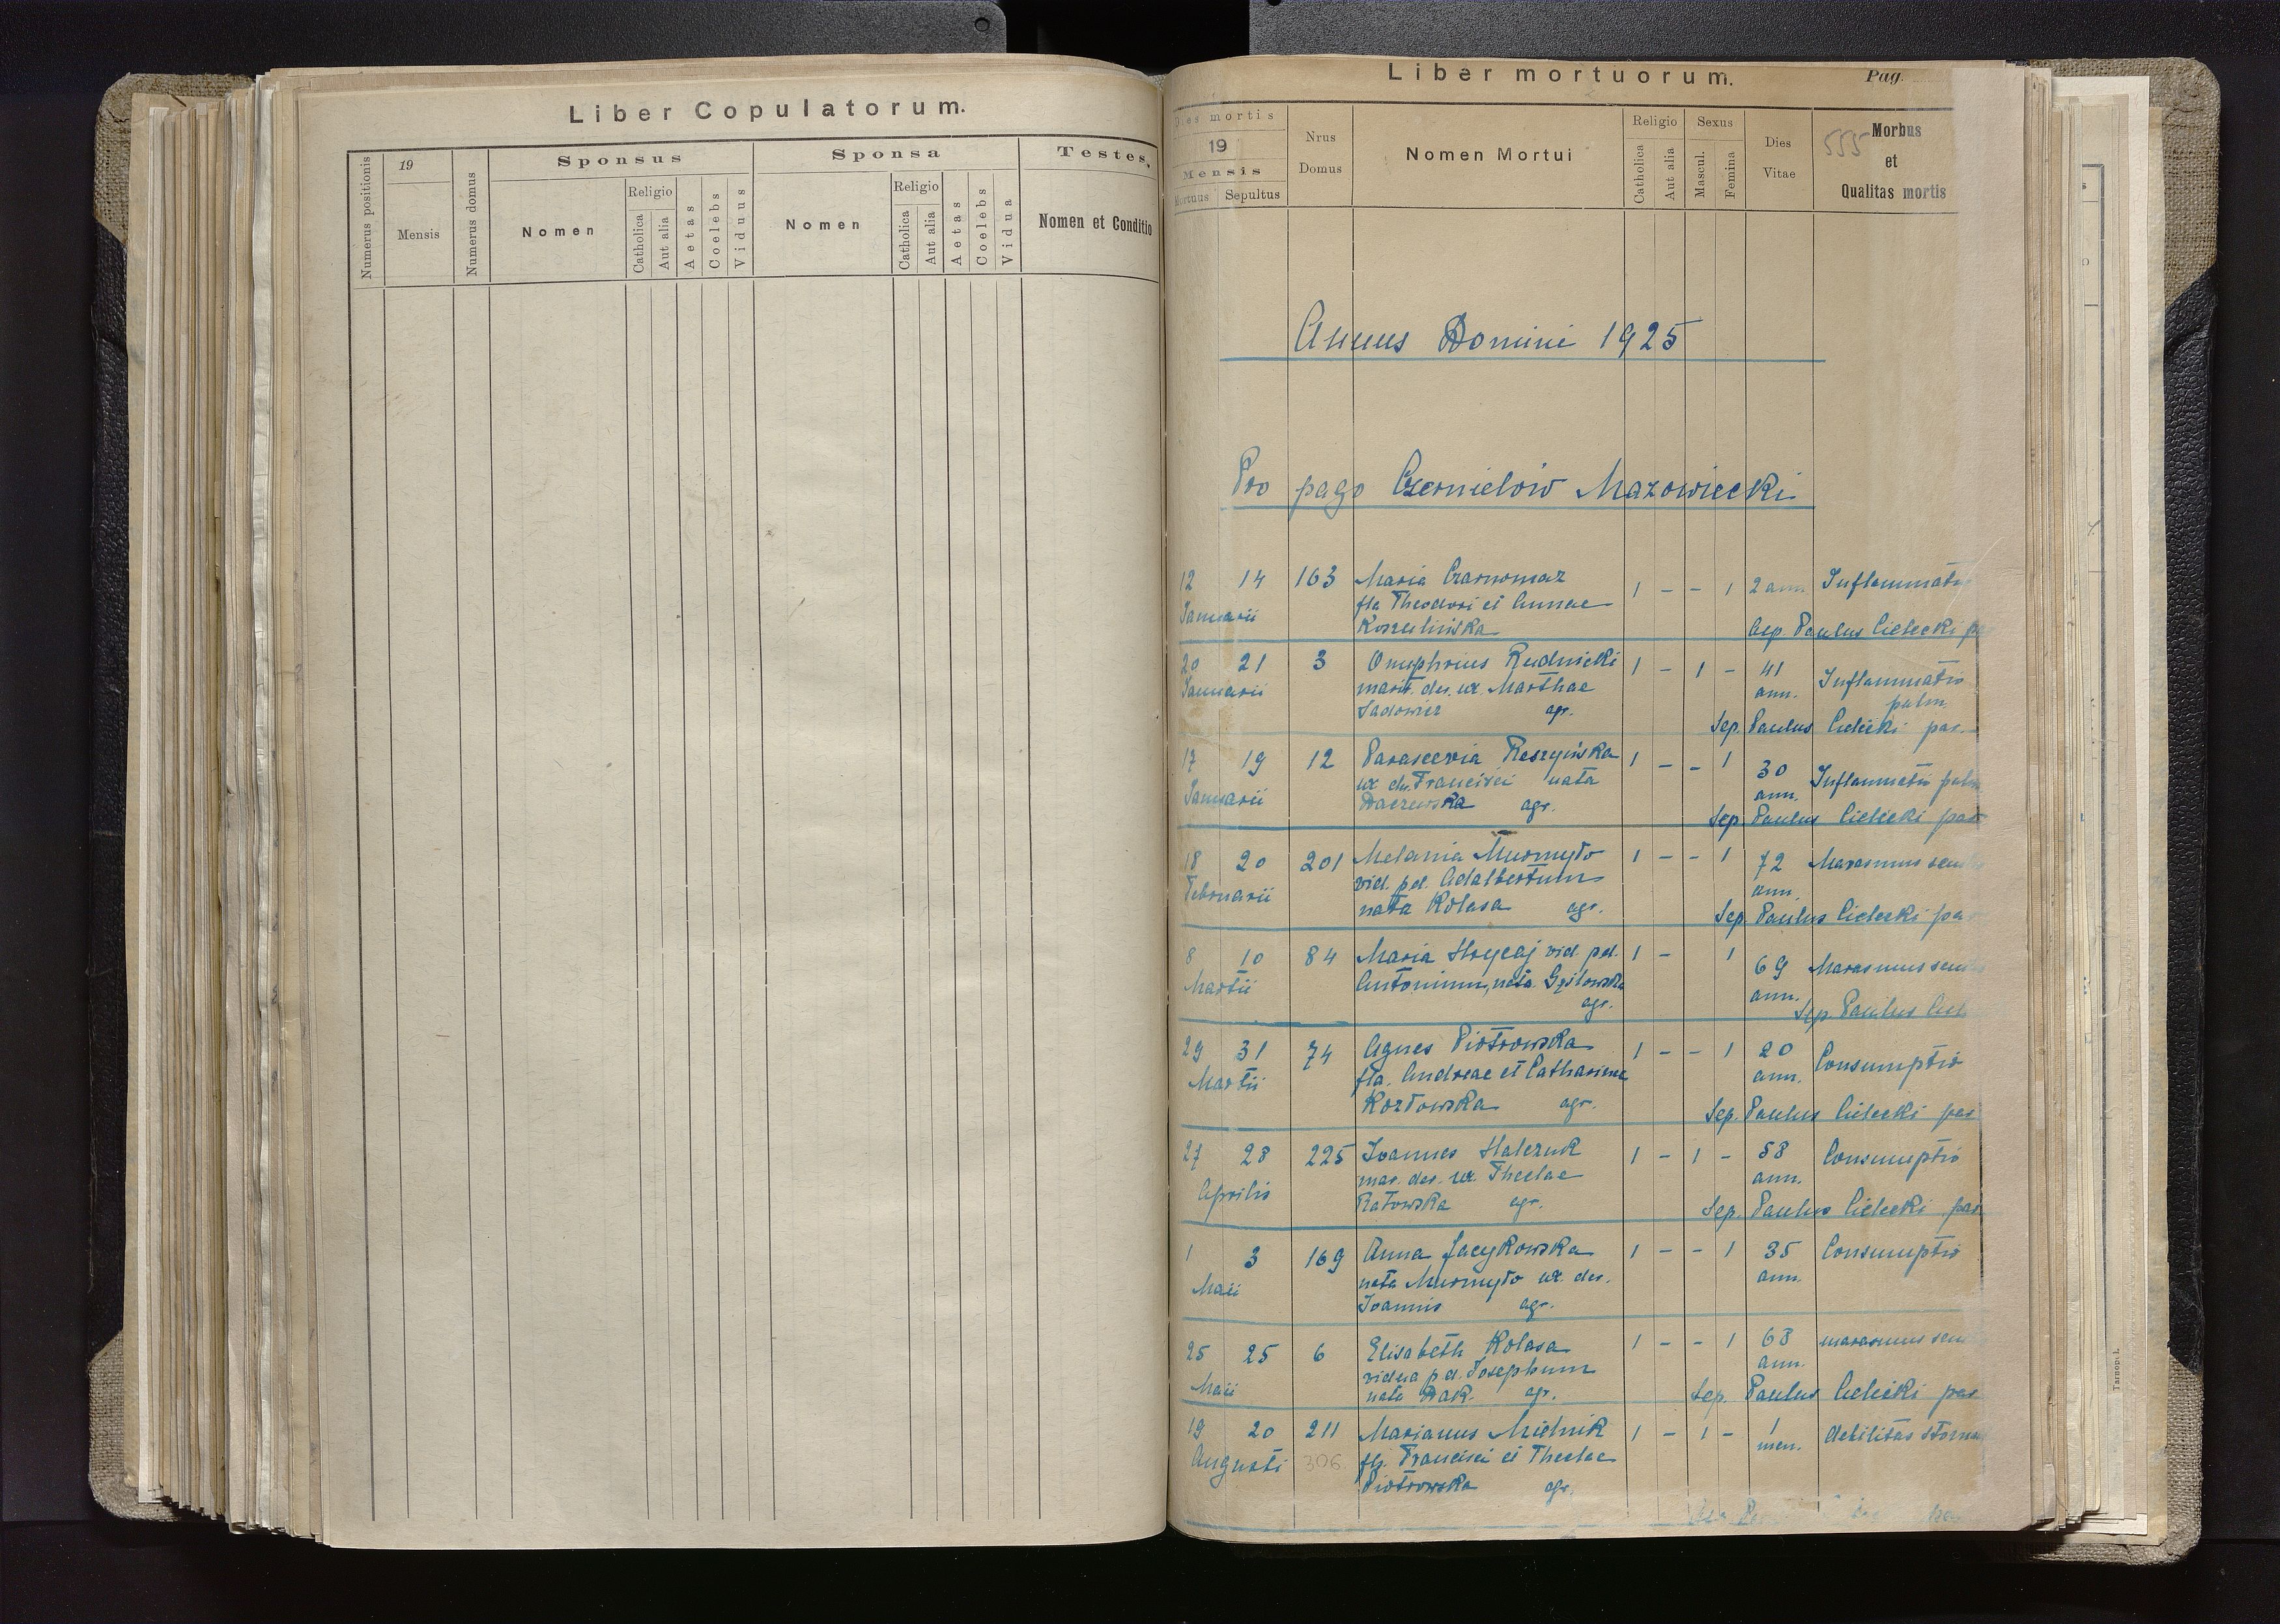 Liber Copulatorum.
Numerus positionis
19
Mensis
Numerus domus
Sponsus
Nomen
Religio
Catholica
Aut alia
Aetas
Coelebs
Viduus
Sponsa
Nomen
Religio
Catholica
Aut alia
Aetas
Coelebs
Vidua
Testes,
Nomen et Conditio
Liber mortuorum.
Pag.
Dies mortis
19
Mensis
Mortuus Sepultus
Nrus
Domus
Nomen Mortui
Religio
Catholica
Aut alia
Sexus
Mascul.
Femina
Dies
Vitae
555
Morbus
et
Qualitas mortis
Annus Domini 1925
Pro pago Czernielów Mazowiecki
12 14 163 Maria Czarnomaz 1 - - 1 2 ann. Inflammatio
Januarii fla Theodori et Annae
Koszulińska Sep. Paulus Cielecki
20 21 3 Onuphrius Rudnicki 1 - 1 - 41 Inflammatio
Januarii marit. der. ux. Marthae ann. pulm.
Sadowicz agr.
Sep. Paulus Cielecki par.
17 19 12 Parascevia Reszyńska 1 - - 1 30 Inflammatio pulm
Januarii ux der. Francisci nata ann.
Daczewska agr. Sep. Paulus Cielecki par
18 20 201 Melania Murmyło 1 - - 1 72 Marasmus
Februarii vid. pd. Adalbertum ann.
nata Kolasa agr. Sep. Paulus Cielecki
8 10 84 Maria Hrycaj vid. pd. 1 - 1 69 Marasmus
Martii Antonium, nata ann.
agr. Sep. Paulus
29 31 74 Agnes Piotrowska 1 - - 1 20 Consumptio
Martii fla. Andreae et Catharinae ann.
Kozłowska agr. Sep. Paulus Cielecki par
27 28 225 Joannes Halczuk 1 - 1 - 58 Consumptio
Aprilis mar. der. ux. Theclae ann.
Ratowska agr. Sep. Paulus Cielecki par
1 3 169 Anna Jacykowska 1 - - 1 35 Consumptio
Maii nata Murmyło ux. der. ann.
Joannis agr.
25 25 6 Elisabeth Kolasa 1 - - 1 68 marasmus
Maii vidua p.d. Josephum ann.
nata Bak. agr. Sep. Paulus Cielecki par
19 20 211 Marianus Mielnik 1 - 1 - 1 debilitas
Augusti 306 fls. Francisci et Theclae men.
Piotrowska agr.
Tarnopol.